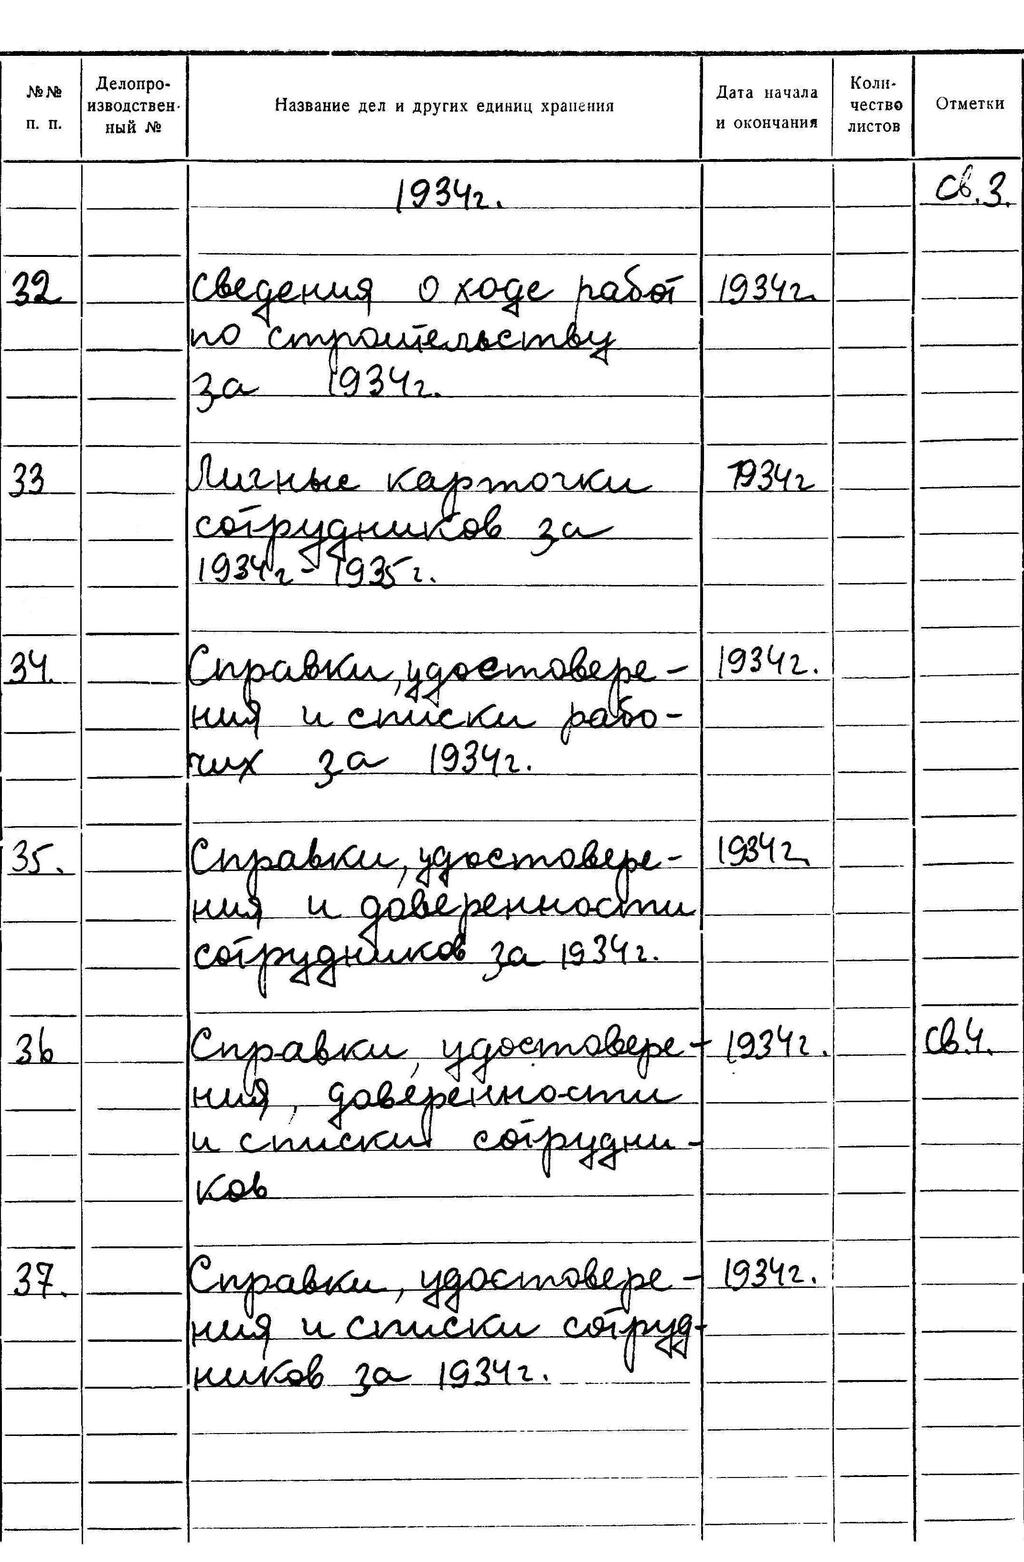 №№ п. п. Делопро-изводствен-ный № Название дел и других единиц хранения Дата начала и окончания Коли-чество листов Отметки
1934г. св.3.
32 сведения о ходе работ 1934г.
по строительству
за 1934г.
33 Личные карточки 1934г
сотрудников за
1934г-1935г.
34. Справки, удостовере- 1934г.
ния и списки рабо-
чих за 1934г.
35. Справки, удостовере- 1934г.
ния и доверенности
сотрудников за 1934г.
36 Справки, удостовере- 1934г. св4.
ния, доверенности
и списки сотрудни-
ков
37. Справки, удостовере- 1934г.
ния и списки сотруд-
ников за 1934г.